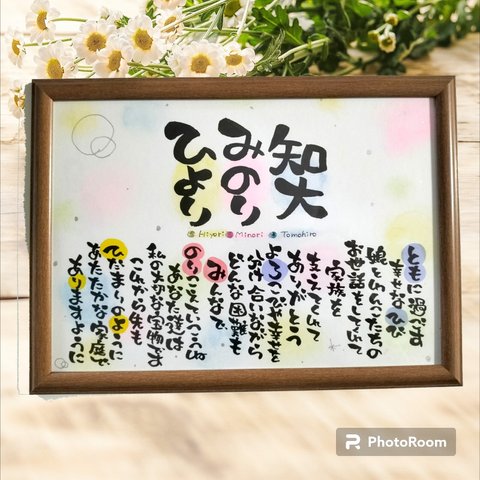 知大
みのり
ひより
Hiyori Minori Tomohiro
ともに過ごす
幸せなひび
娘とわんこたちの
お世話をしてくれて
家族を
支えてくれて
ありがとう
よろこびや幸せを
分け合いながら
どんな困難も
みんなで
のりこえていこうね
あなた達は
私の大切な宝物です
これから先も
ひだまりのように
あたたかな家庭で
ありますように
PhotoRoom